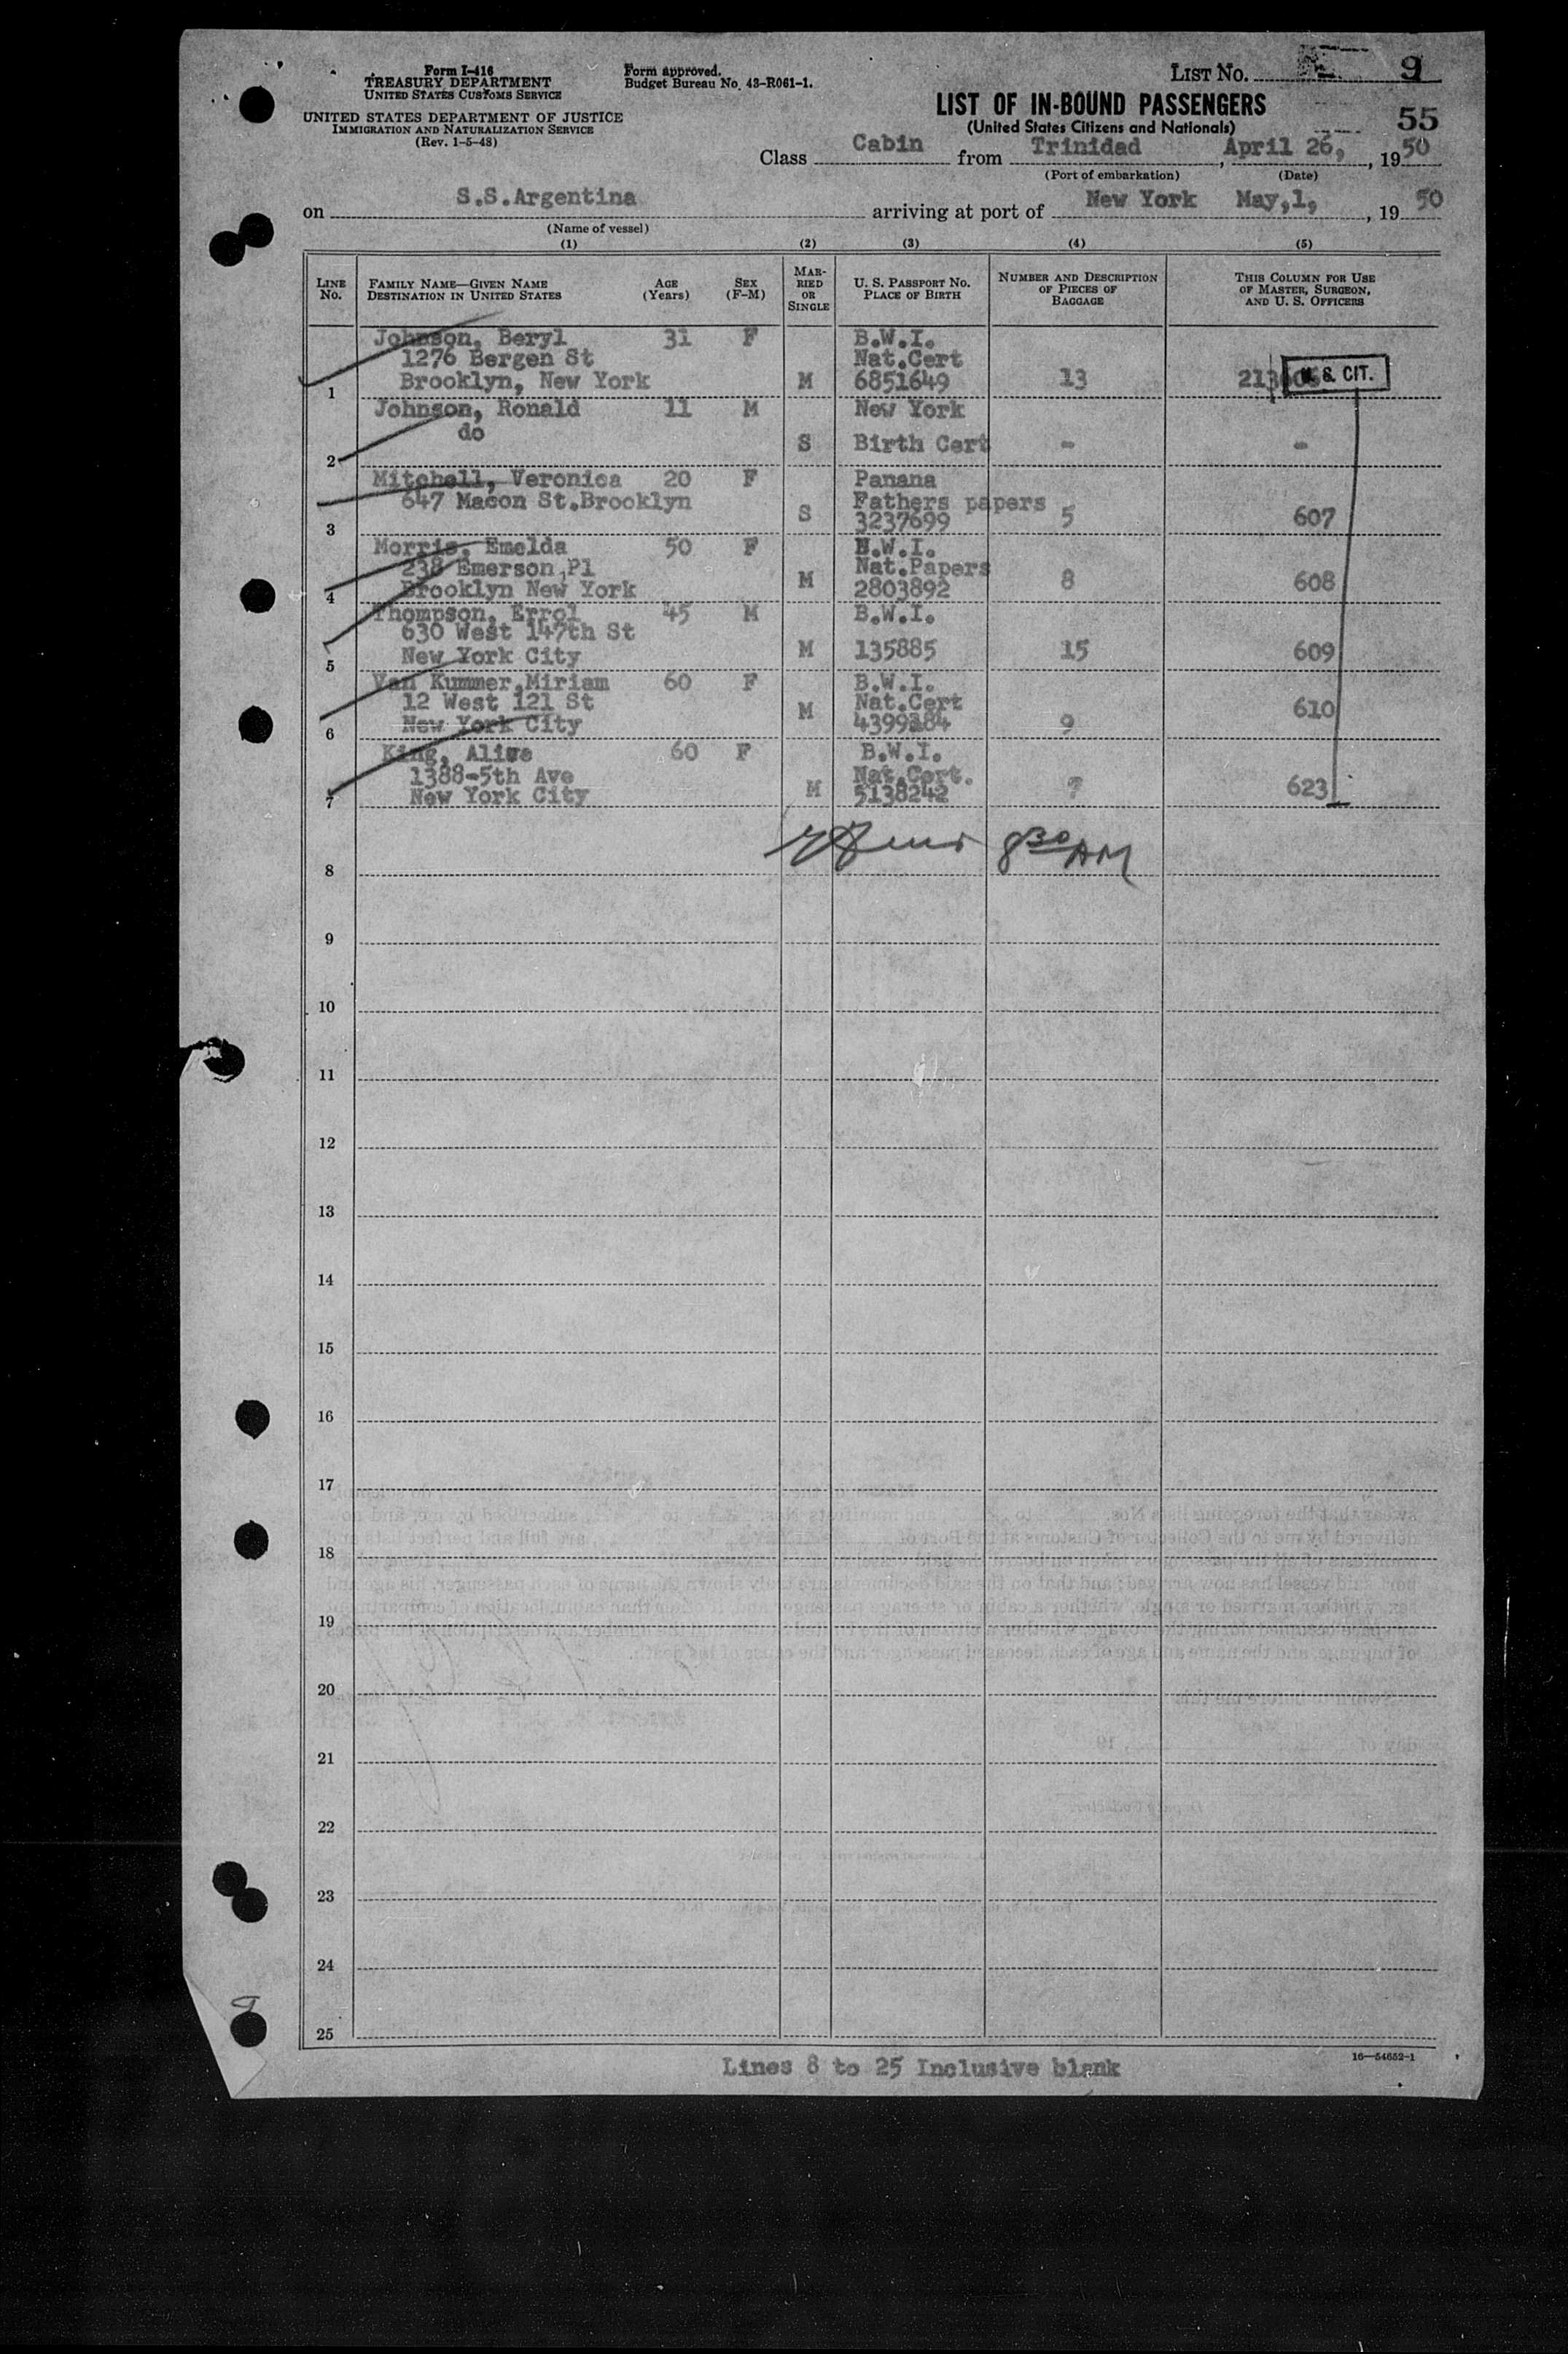 Form I-416
TREASURY DEPARTMENT
UNITED STATES CUSTOMS SERVICE
UNITED STATES DEPARTMENT OF JUSTICE
IMMIGRATION AND NATURALIZATION SERVICE
(Rev. 1-5-48)
Form approved.
Budget Bureau No. 43-R061-1.
LIST NO. 9
LIST OF IN-BOUND PASSENGERS
(United States Citizens and Nationals)
55
Class Cabin from Trinidad, April 26, 1950
(Port of embarkation) (Date)
on S.S.Argentina arriving at port of New York May,1, 1950
(Name of vessel)
(1) (2) (3) (4) (5)
LINE NO.
FAMILY NAME—GIVEN NAME
DESTINATION IN UNITED STATES
AGE (Years)
SEX (F-M)
MARRIED OR SINGLE
U. S. PASSPORT NO.
PLACE OF BIRTH
NUMBER AND DESCRIPTION OF PIECES OF BAGGAGE
THIS COLUMN FOR USE OF MASTER, SURGEON, AND U. S. OFFICERS
Johnson, Beryl 31 F B.W.I.
1276 Bergen St Nat.Cert
1 Brooklyn, New York M 6851649 13 U. S. CIT.
Johnson, Ronald 11 M New York
do
2 S Birth Cert - -
Mitchell, Veronica 20 F Panana
647 Macon St.Brooklyn Fathers papers
3 S 3237699 5 607
Morris, Emelda 50 F B.W.I.
238 Emerson Pl Nat.Papers
4 Brooklyn New York M 2803892 8 608
Thompson, Errol 45 M B.W.I.
630 West 147th St
5 New York City M 135885 15 609
Van Kummer,Miriam 60 F B.W.I.
12 West 121 St Nat.Cert
6 New York City M 9 610
King, 60 F B.W.I.
1388-5th Ave Nat.Cert.
7 New York City M 5138242 ? 623
8 8 30 AM
9
10
11
12
13
14
15
16
17
18
19
20
21
22
23
24
25
Lines 8 to 25 Inclusive blank
16—54652-1
9